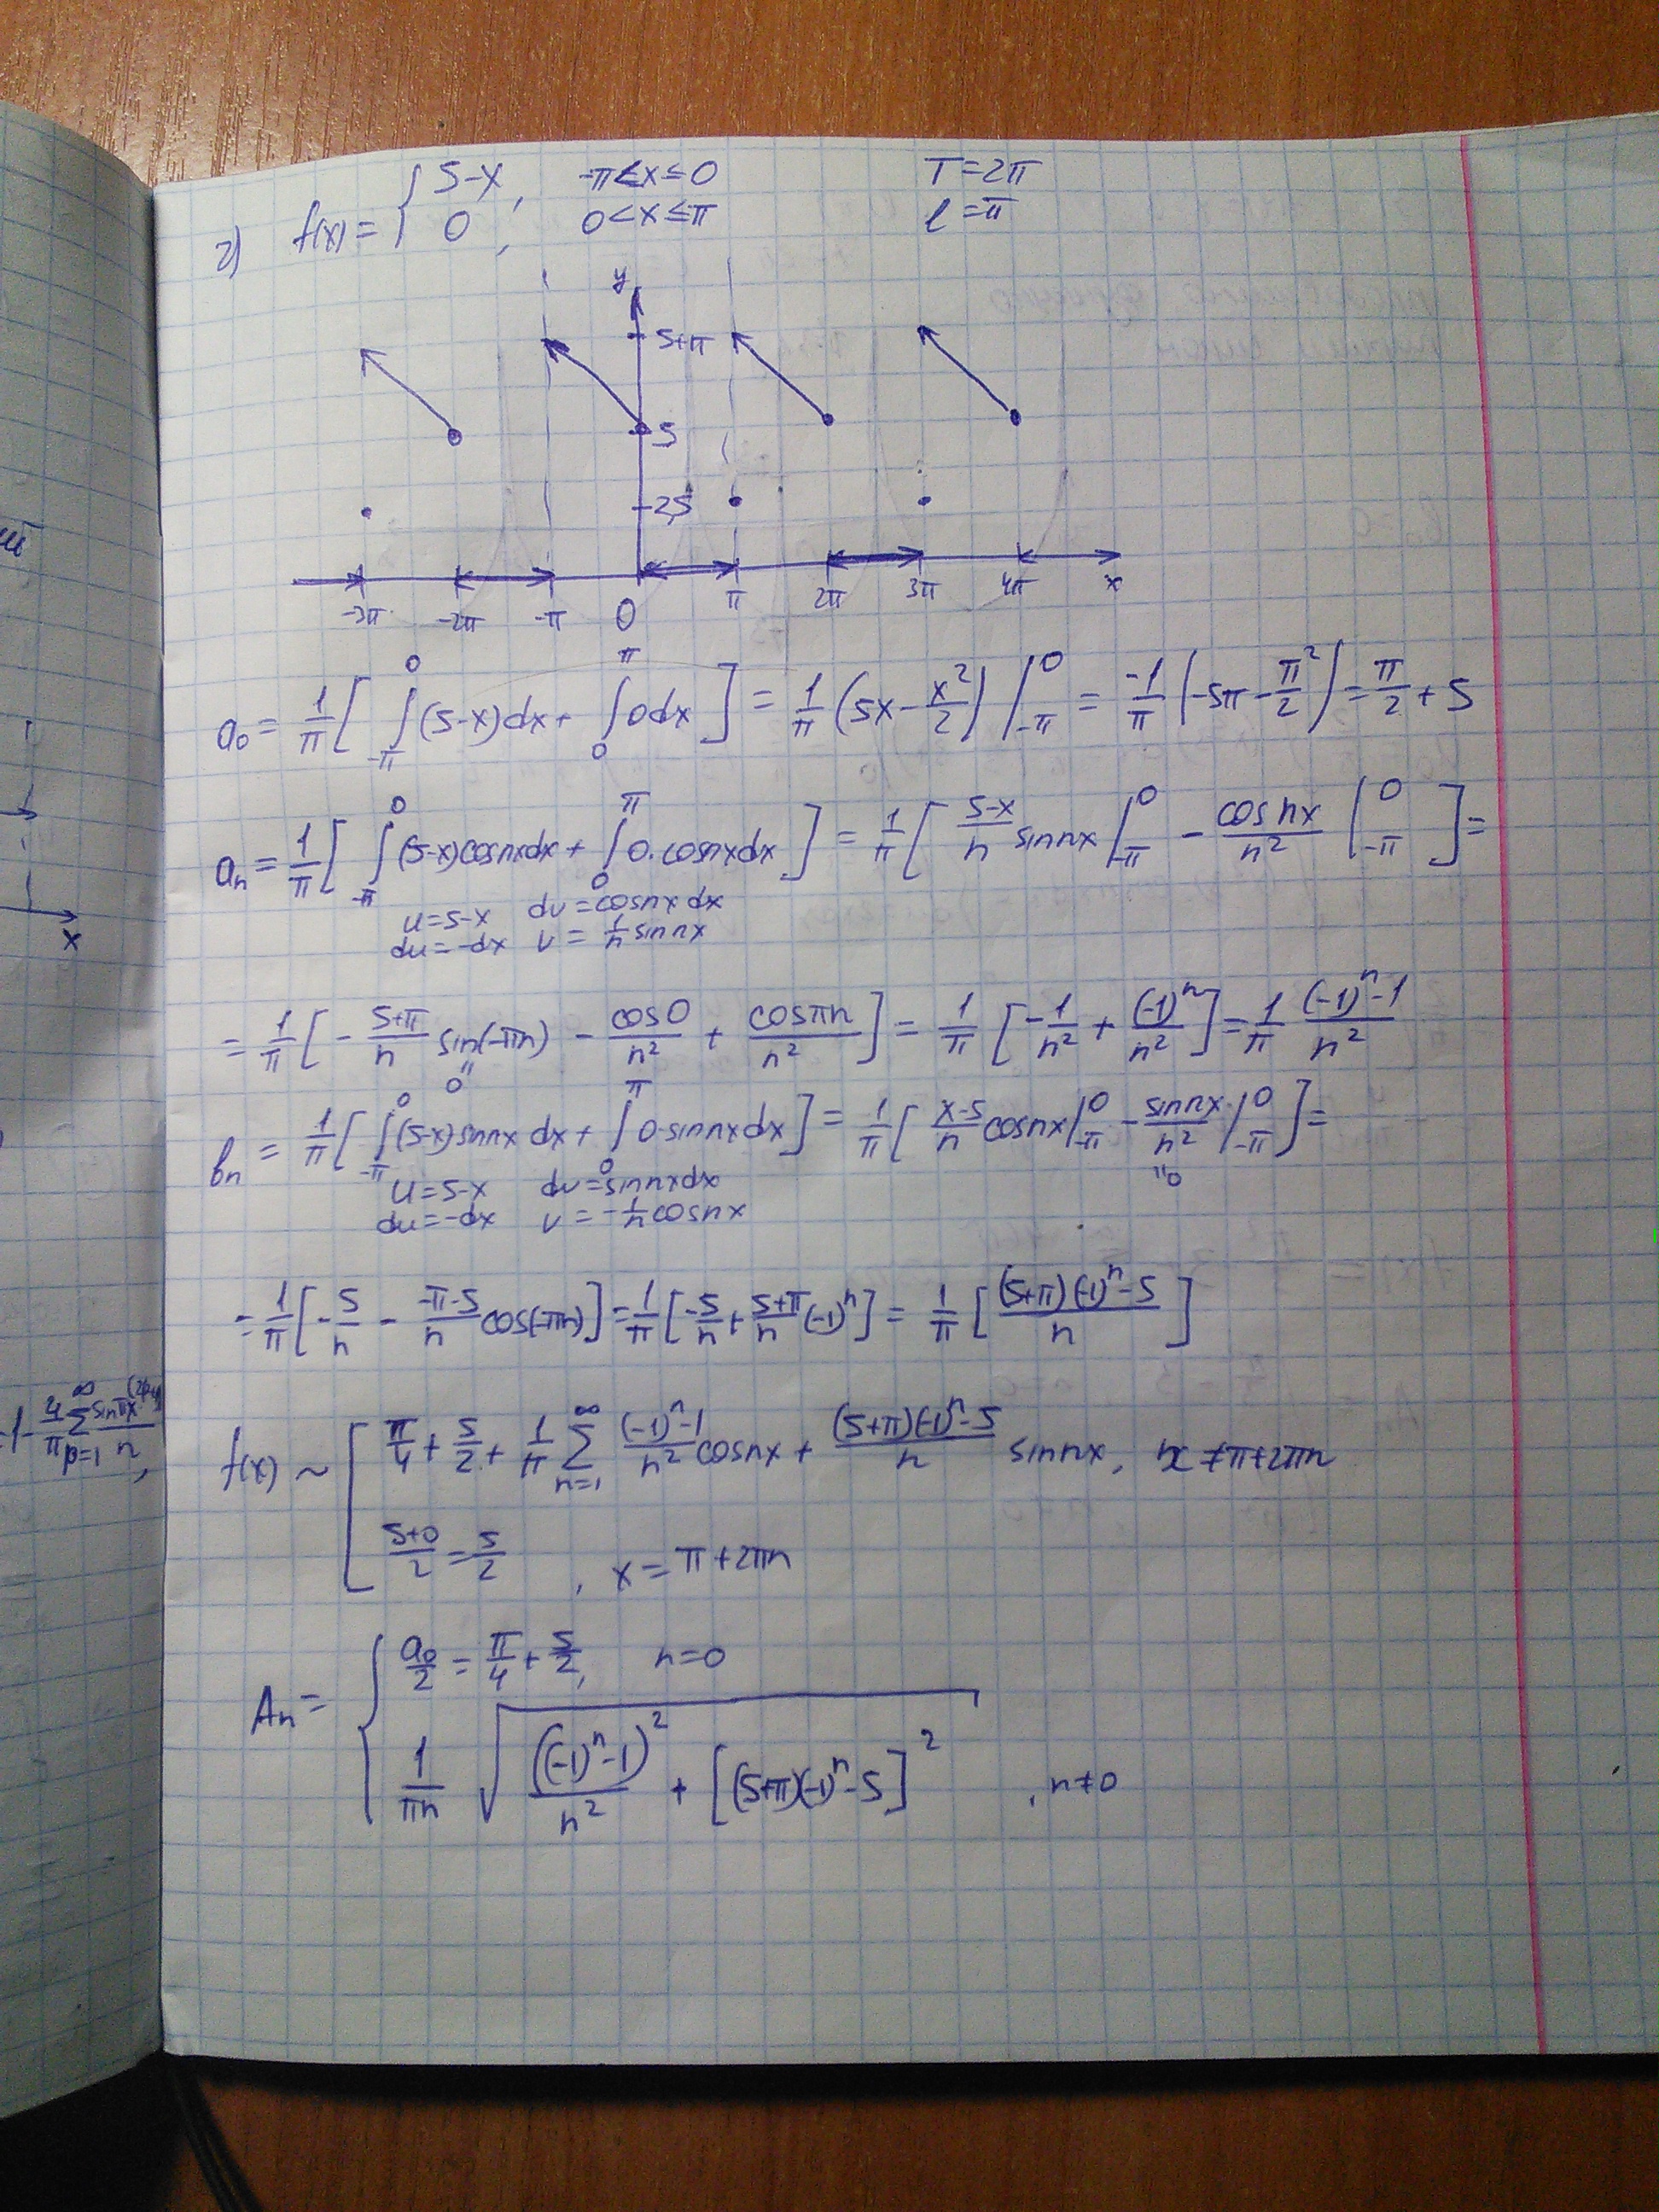 г) f(x) = { 5-x, -π<x≤0 T=2π
0, 0<x≤π l=π
y
5+π
5
2,5
-3π -2π -π 0 π 2π 3π 4π x
a₀ = 1/π [ ∫_{-π}^{0} (5-x)dx + ∫_{0}^{π} 0dx ] = 1/π (5x - x²/2) |_{-π}^{0} = -1/π (-5π - π²/2) = π/2 + 5
aₙ = 1/π [ ∫_{-π}^{0} (5-x)cosnxdx + ∫_{0}^{π} 0·cosnxdx ] = 1/π [ (5-x)/n sinnx |_{-π}^{0} - cosnx/n² |_{-π}^{0} ] =
u=5-x dv=cosnxdx
du=-dx v = 1/n sinnx
= 1/π [ - (5+π)/n sin(-πn) - cos0/n² + cosπn/n² ] = 1/π [ -1/n² + (-1)ⁿ/n² ] = 1/π ((-1)ⁿ-1)/n²
"0
bₙ = 1/π [ ∫_{-π}^{0} (5-x)sinnxdx + ∫_{0}^{π} 0·sinnxdx ] = 1/π [ (x-5)/n cosnx |_{-π}^{0} - sinnx/n² |_{-π}^{0} ] =
"0
u=5-x dv=sinnxdx
du=-dx v = -1/n cosnx
= 1/π [ -5/n - (-π-5)/n cos(-πn) ] = 1/π [ -5/n + (5+π)/n (-1)ⁿ ] = 1/π [ ((5+π)(-1)ⁿ-5)/n ]
f(x) ~ [ π/4 + 5/2 + 1/π ∑_{n=1}^{∞} ((-1)ⁿ-1)/n² cosnx + ((5+π)(-1)ⁿ-5)/n sinnx, x≠π+2πn
(5+0)/2 = 5/2, x=π+2πn
Aₙ = { a₀/2 = π/4 + 5/2, n=0
1/πn √( ((-1)ⁿ-1)²/n² + [(5+π)(-1)ⁿ-5]² ), n≠0
x